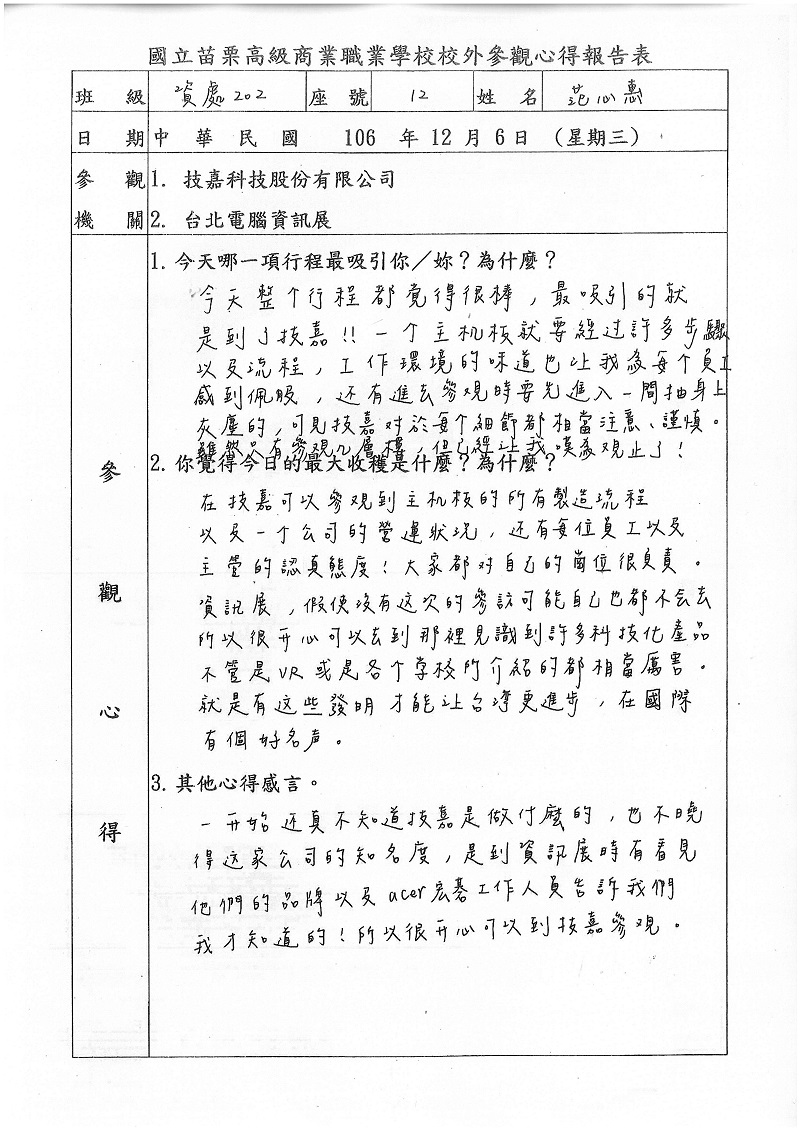 國立苗栗高級商業職業學校校外參觀心得報告表
班級 資處202 座號 12 姓名 范心惠
日期 中華民國 106 年 12 月 6 日 (星期三)
參觀機關
1. 技嘉科技股份有限公司
2. 台北電腦資訊展
參觀心得
1. 今天哪一項行程最吸引你／妳？為什麼？
今天整个行程都覺得很棒，最吸引的就
是到了技嘉!! 一个主机板就要經过許多步驟
以及流程，工作環境的味道也让我為每个員工
感到佩服，还有進去參观時要先進入一間抽身上
灰塵的，可見技嘉对於每个細節都相當注意、謹慎。
雖然只有參观几層樓，但已經让我嘆為观止了!
2. 你覺得今日的最大收穫是什麼？為什麼？
在技嘉可以參观到主机板的所有製造流程
以及一个公司的營運狀況，还有每位員工以及
主管的認真態度! 大家都对自己的崗位很負責。
資訊展，假使沒有这次的參訪可能自己也都不会去
所以很开心可以去到那裡見識到許多科技化產品
不管是VR或是各个学校所介紹的都相當厲害。
就是有这些發明才能让台灣更進步，在國際
有個好名声。
3. 其他心得感言。
一开始还真不知道技嘉是做什麼的，也不曉
得这家公司的知名度，是到資訊展時有看見
他們的品牌以及acer宏碁工作人員告訴我們
我才知道的! 所以很开心可以到技嘉參观。